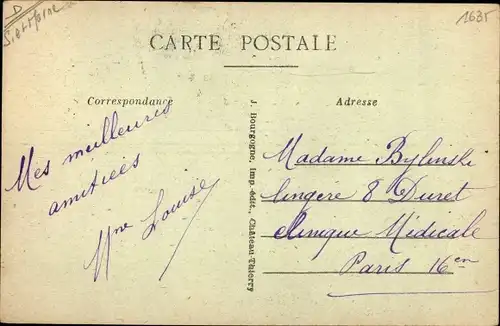 D
1635
CARTE POSTALE
Correspondance
Adresse
Mes meilleures
amitiées
Mme Louise
J. Bourgogne, Imp.-édit., Château-Thierry
Madame Bylinski
lingère 8 Duret
clinique Médicale
Paris 16em